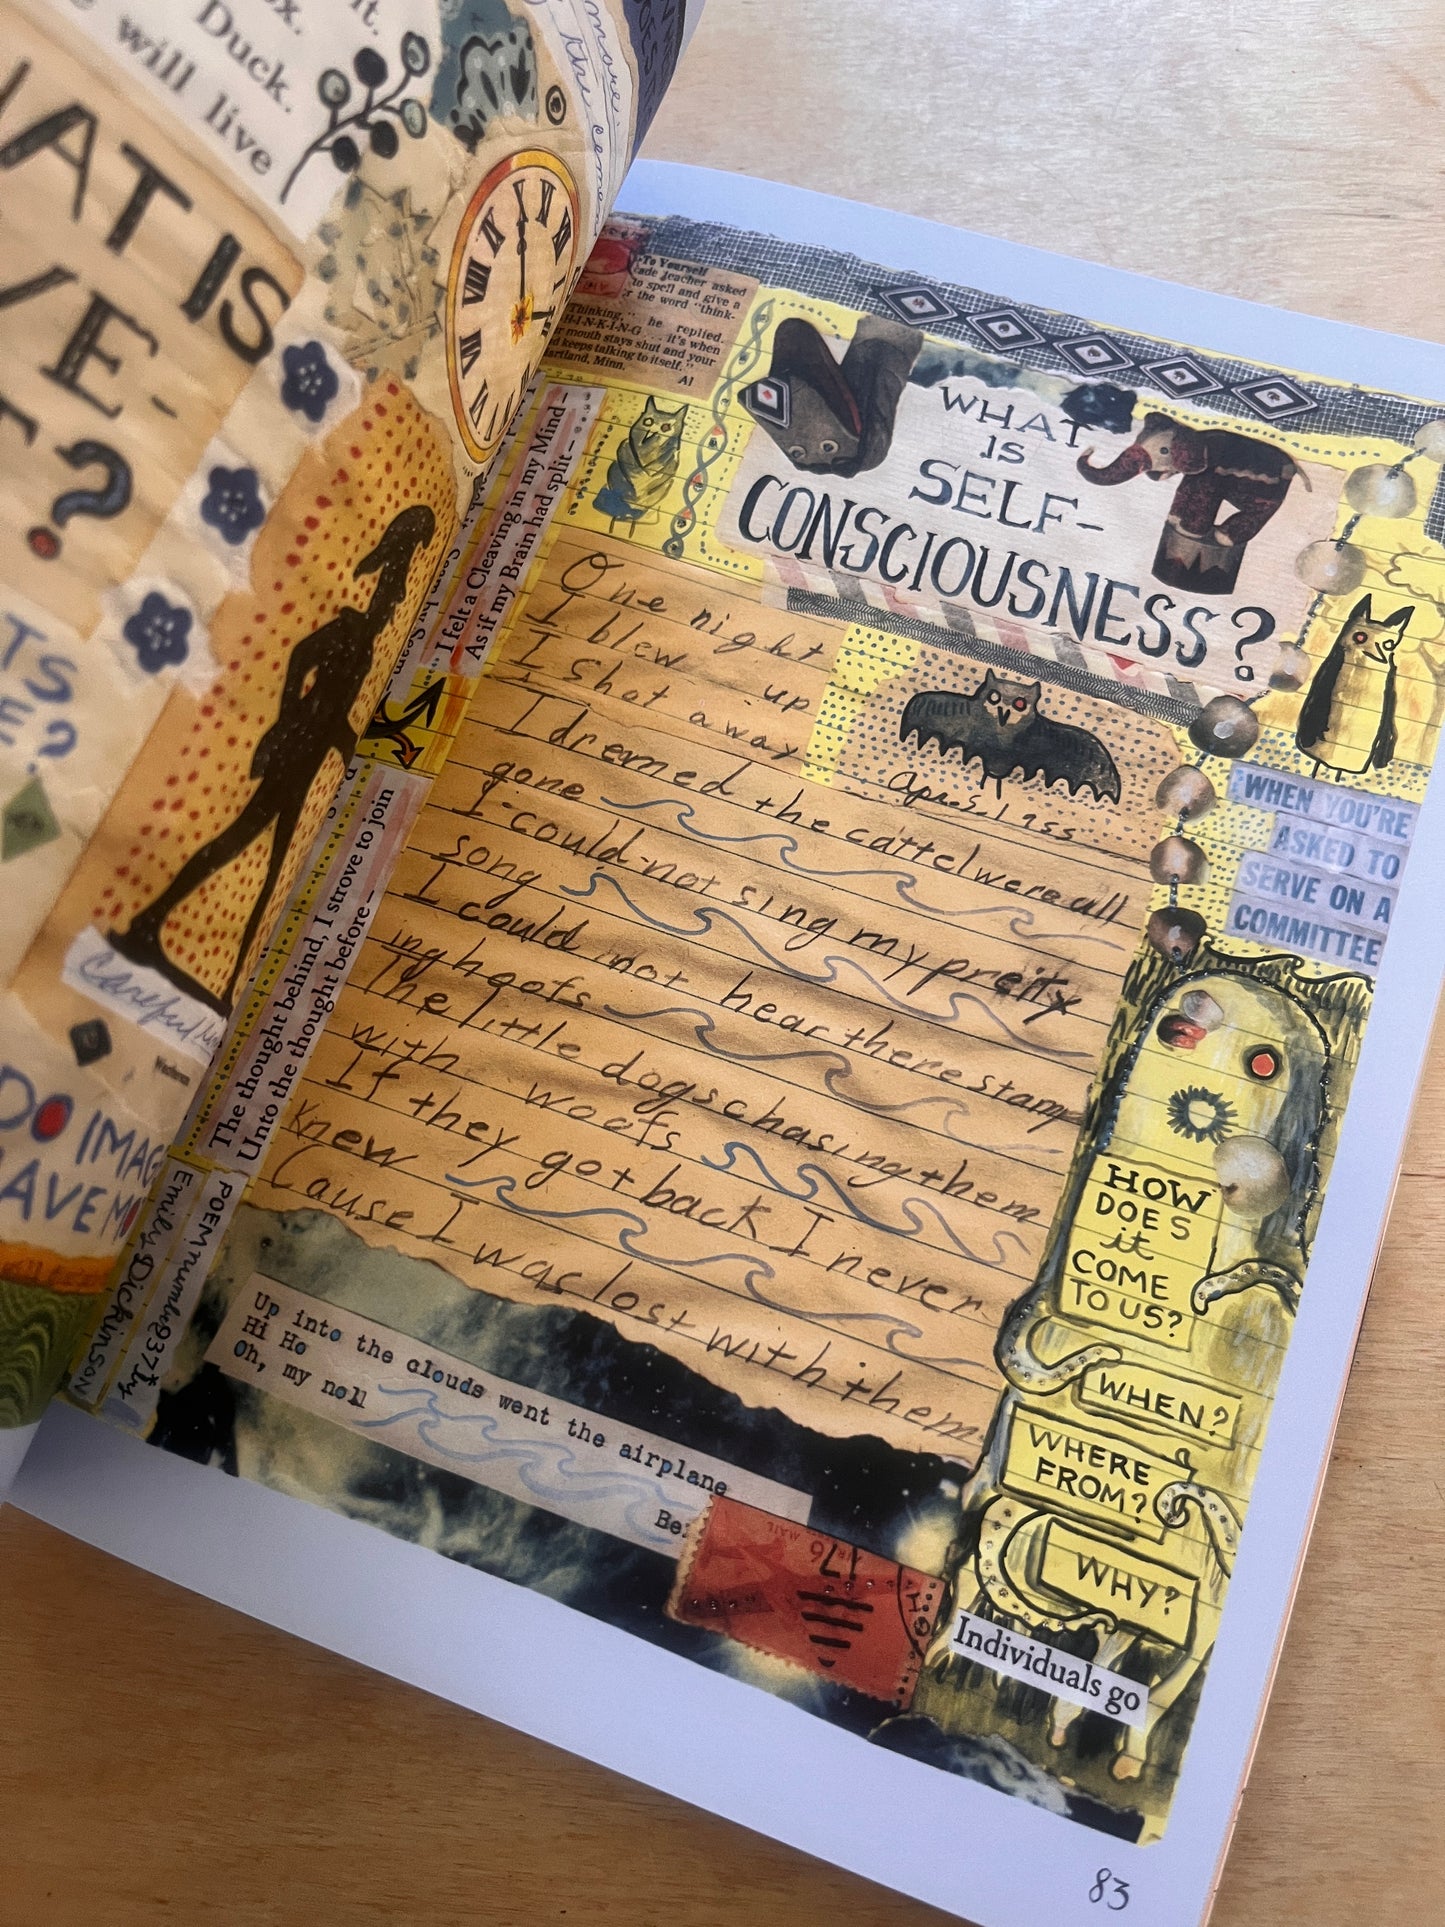 it.
ox.
Duck.
will live
more.
HAT IS
VE-
T?
TS
E?
Careful
DO IMAG
HAVE MO
To Yourself
ade teacher asked
to spell and give a
r the word "think-
Thinking,"
H-I-N-K-I-N-G . . . it's when
r mouth stays shut and your
d keeps talking to itself."
artland, Minn.
Al
WHAT
IS
SELF-
CONSCIOUSNESS?
"I felt a Cleaving in my Mind –
As if my Brain had split –
Seam by Seam
The thought behind, I strove to join
Unto the thought before –
POEM number 937* by
Emily Dickinson
One night
I blew up
I shot away
I dremed the cattel were all
gone
I could not sing my preity
song
I could not hear there stamp
ing hoofs
The little dogs chasing them
with woofs
If they got back I never
knew
Cause I was lost with them
WHEN YOU'RE
ASKED TO
SERVE ON A
COMMITTEE
HOW
DOES
it
COME
TO US?
WHEN?
WHERE
FROM?
WHY?
Individuals go
Up into the clouds went the airplane
Hi Ho
Oh, my noll
Be
AIR MAIL
1776
83